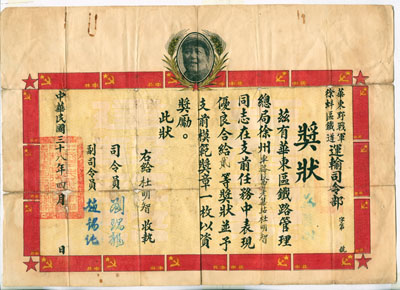 華東野戰軍
徐蚌區鐵道
運輸司令部
字第　號
獎狀
茲有華東區鐵路管理
總局徐州
杜明智
同志在支前任務中表現
優良合給貳等獎狀並予
支前模範獎章一枚以資
獎勵。
此狀
右給杜明智收執
司令員
副司令員
中華民國三十八年四月　日